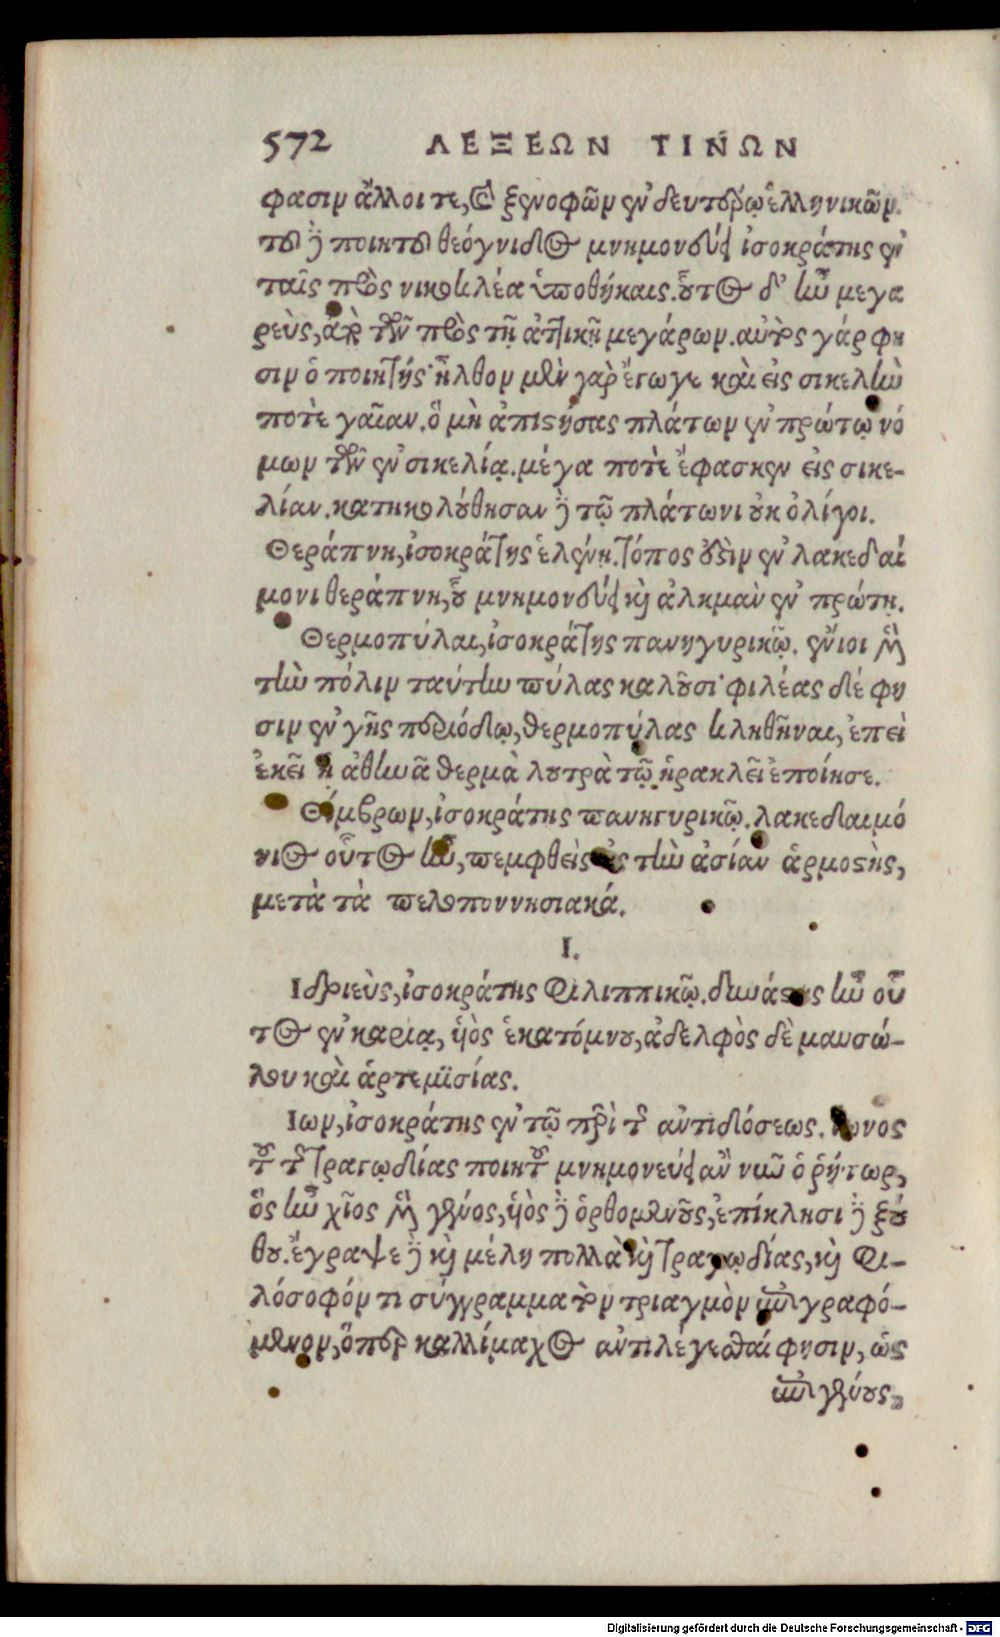 572 ΛΕΞΕΩΝ ΤΙΝΩΝ
φασιν ἄλλοι τε, καὶ ξενοφῶν ἐν δευτέρῳ ἑλληνικῶν.
τοῦ δὲ ποιητοῦ θεόγνιδος μνημονεύει ἰσοκράτης ἐν
ταῖς πρὸς νικοκλέα ὑποθήκαις. οὗτος δ' ἦν μεγα
ρεὺς, ἀπὸ τῶν πρὸς τῇ ἀττικῇ μεγάρων. αὐτὸς γάρ φη
σιν ὁ ποιητής· ἦλθον μὲν γὰρ ἔγωγε καὶ εἰς σικελὴν
ποτὲ γαῖαν. ὃ μὴ ἀπιστήσας πλάτων ἐν πρώτῳ νό
μων τῶν ἐν σικελίᾳ. μέγα ποτὲ ἔφασκεν εἰς σικε-
λίαν. κατηκολούθησαν δὲ τῷ πλάτωνι οὐκ ὀλίγοι.
Θεράπνη, ἰσοκράτης ἑλένῃ. τόπος ἐστὶν ἐν λακεδαί
μονι θεράπνη, οὗ μνημονεύει καὶ ἀλκμὰν ἐν πρώτῃ.
Θερμοπύλαι, ἰσοκράτης πανηγυρικῷ. ἔνιοι μὲν
τὴν πόλιν ταύτην πύλας καλοῦσι· φιλέας δέ φη
σιν ἐν γῆς περιόδῳ, θερμοπύλας κληθῆναι, ἐπεὶ
ἐκεῖ ἡ ἀθηνᾶ θερμὰ λουτρὰ τῷ ἡρακλεῖ ἐποίησε.
Θίμβρων, ἰσοκράτης πανηγυρικῷ. λακεδαιμό
νιος οὗτος ἦν, πεμφθεὶς εἰς τὴν ἀσίαν ἁρμοστὴς,
μετὰ τὰ πελοποννησιακά.
Ι.
Ιδριεὺς, ἰσοκράτης Φιλιππικῷ. δυνάστης ἦν οὗ
τος ἐν καρίᾳ, ὑὸς ἑκατόμνου, ἀδελφὸς δὲ μαυσώ-
λου καὶ ἀρτεμισίας.
Ιων, ἰσοκράτης ἐν τῷ περὶ τῆς ἀντιδόσεως. ἴωνος
τοῦ τῆς τραγῳδίας ποιητοῦ μνημονεύει ἂν νῦν ὁ ῥήτωρ,
ὃς ἦν χῖος μὲν γένος, ὑὸς δὲ ὀρθομένους, ἐπίκλησι δὲ ξού
θου. ἔγραψε δὲ καὶ μέλη πολλὰ καὶ τραγῳδίας, καὶ Φι-
λόσοφόν τι σύγγραμμα τὸν τριαγμὸν ἐπιγραφό-
μενον, ὅπερ καλλίμαχος ἀντιλέγεσθαί φησιν, ὡς
ἐπιγένους,
Digitalisierung gefördert durch die Deutsche Forschungsgemeinschaft - DFG